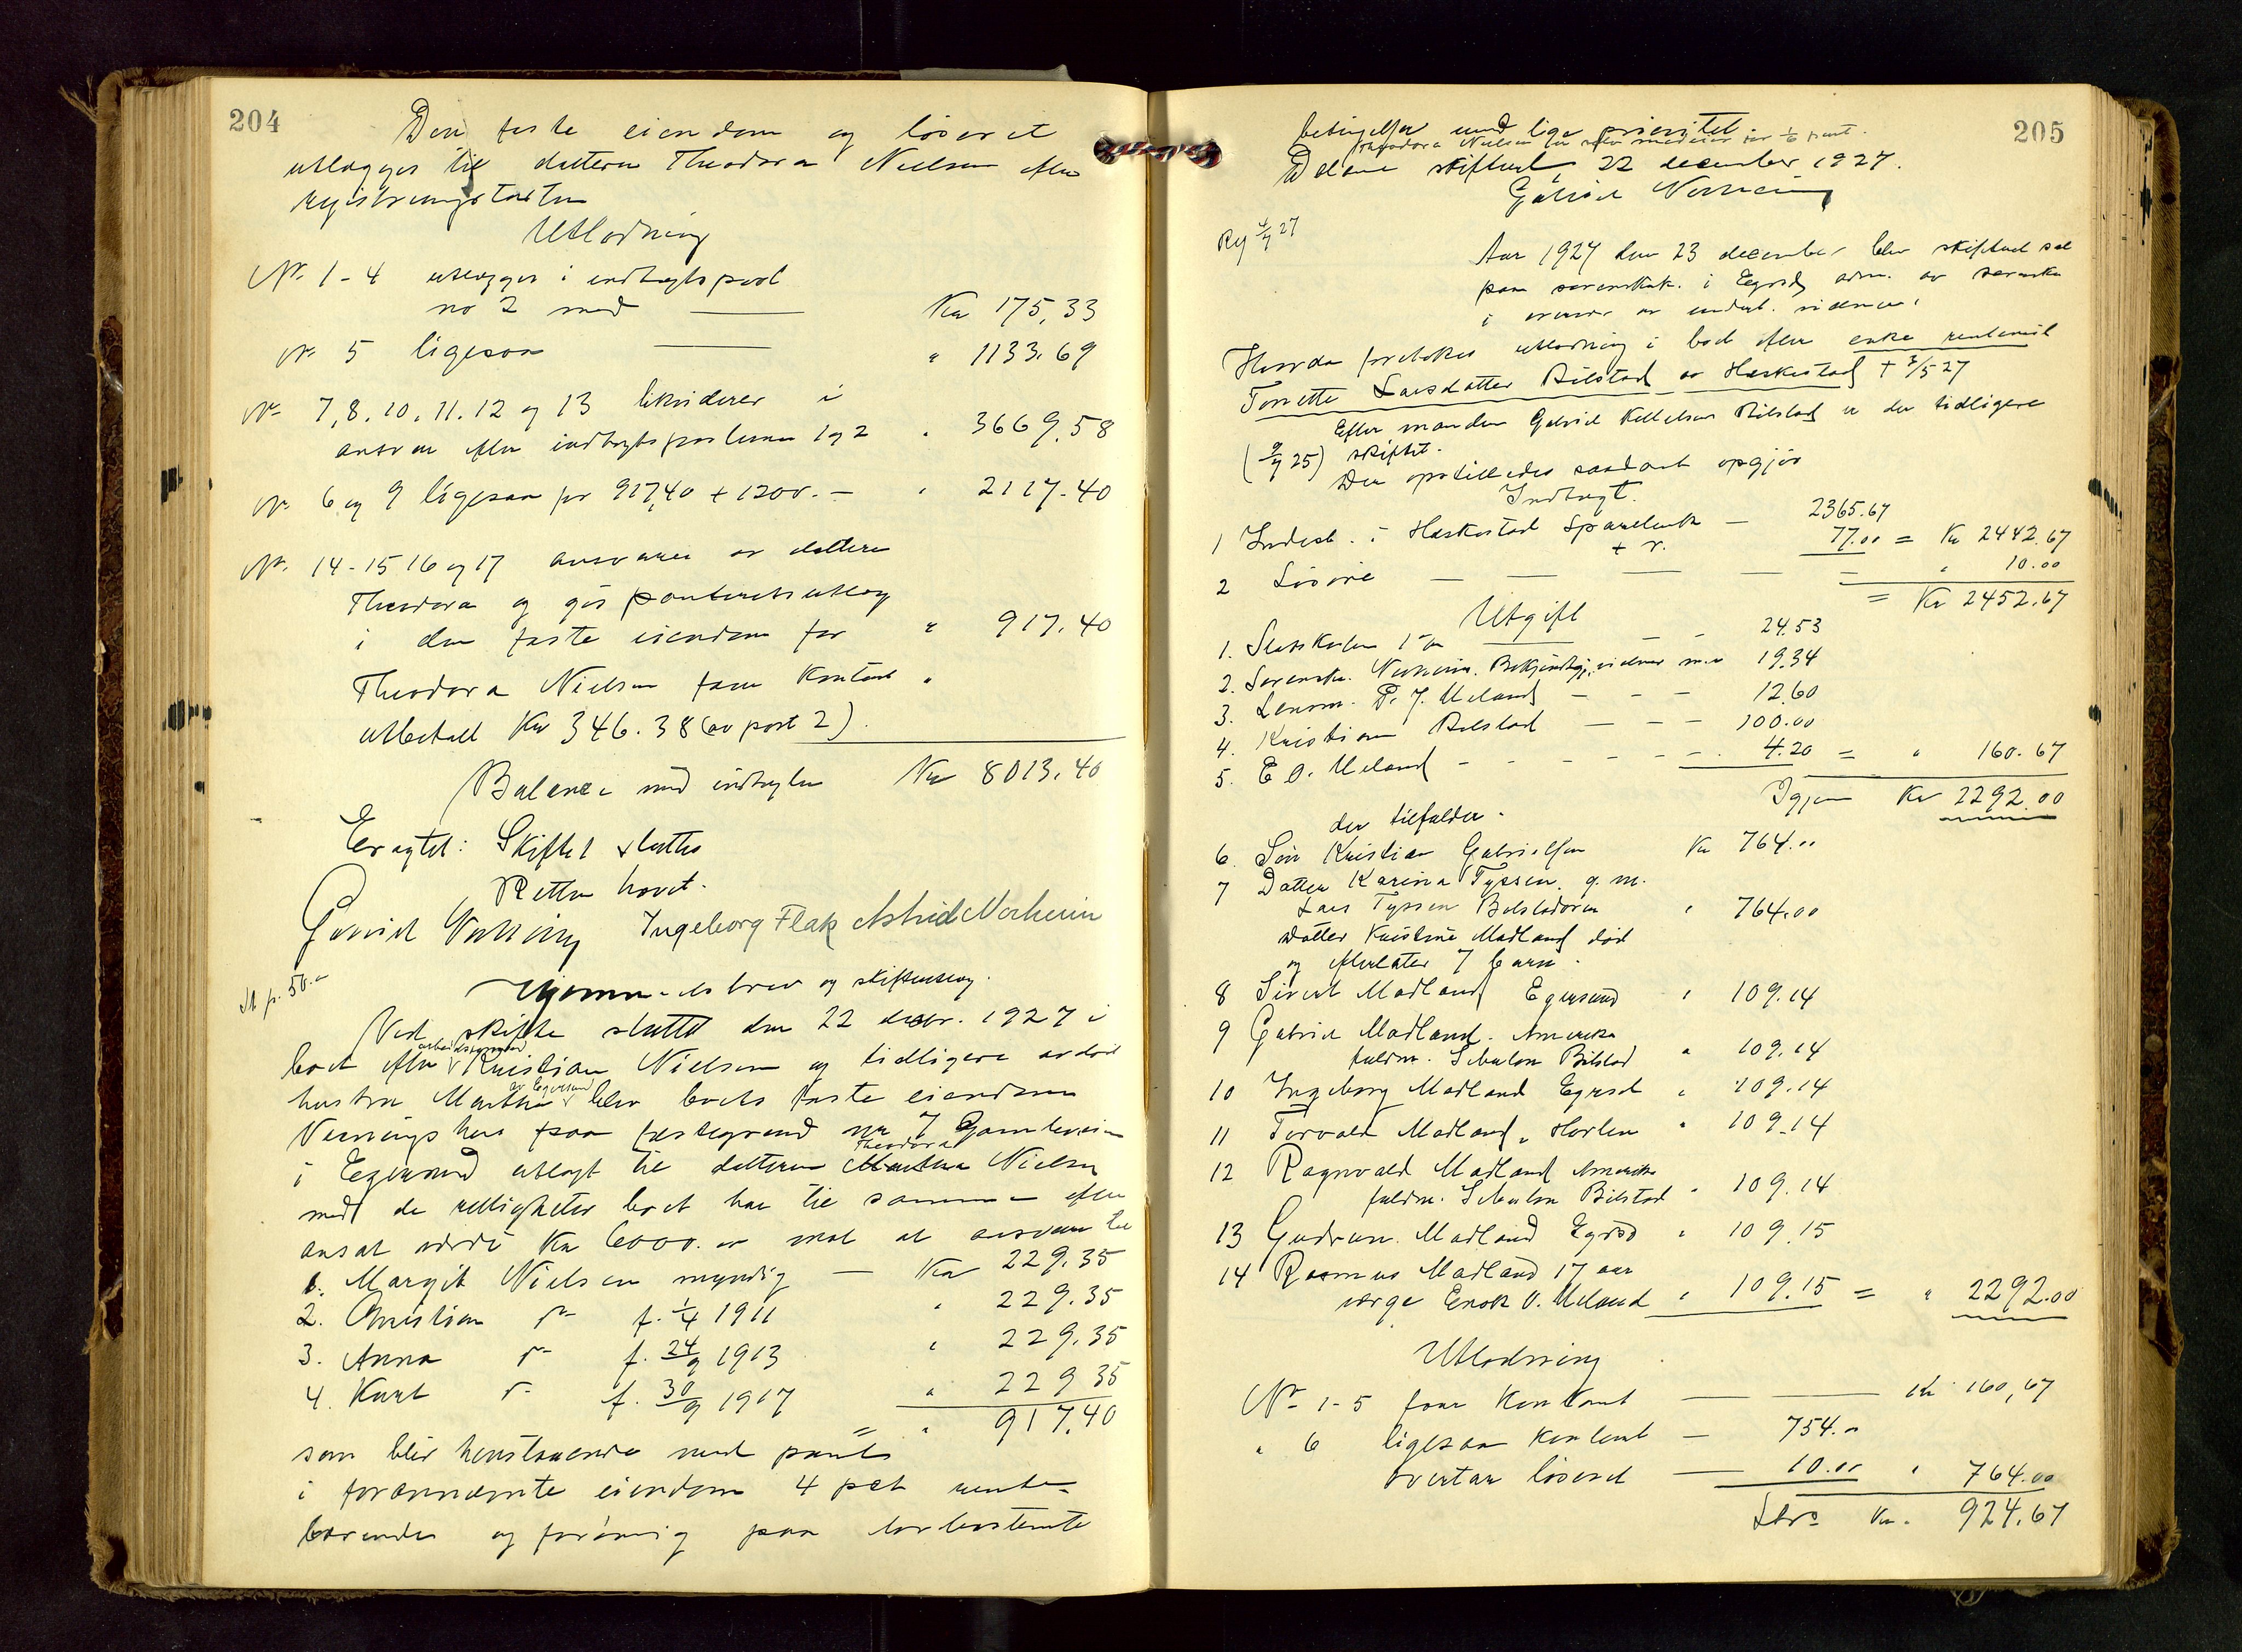 204
Den faste eiendom og løsøret
utlægges til datteren Theodora Nielsen efter
registreringstaksten
Utlodning
Nr. 1-4 utlægges i indtægtspost
no 2 med — Kr 175,33
Nr 5 ligesaa — " 1133.69
Nr 7, 8. 10. 11. 12 og 13 likviderer i
ansvar efter indtægtsposterne 1 og 2 " 3669.58
Nr 6 og 9 ligesaa for 917,40 + 1200.- " 2117.40
Nr. 14-15 16 og 17 ansvares av datteren
Theodora og gis panteretsutlæg
i den faste eiendom for " 917.40
Theodora Nielsen faar kontant "
utbetalt Kr 346.38 (av post 2).
Balance med indtægten Kr 8013.40
Eragtet: Skiftet sluttes
Retten hævet.
Gabriel Norheim Ingeborg Flak Astrid Norheim
St p. 50.-
Hjemmelsbrev og skifteutlæg.
Ved skifte sluttet den 22 decbr. 1927 i
boet efter arbeidsmand Kristian Nielsen og tidligere avdød
hustru Martha av Egersund blev boets faste eiendom
Vaaningshus paa festegrund nr 7 Gamleveien
i Egersund utlagt til datteren Theodora Nielsen
med de rettigheter boet har til samme efter
ansat værdi Kr 6000.00 mot at ansvare til
1. Margit Nielsen myndig — Kr 229.35
2. Christian do f. 1/4 1911 " 229.35
3. Anna do f. 24/9 1913 " 229.35
4. Kurt do f. 30/9 1917 " 229 35
= " 917.40
som blir henstaaende med pant
i forannævnte eiendom 4 pct rente-
bærende og forøvrig paa lovbestemte
205
betingelser med lige prioritet.
Theodora Nielsen
Dalane skifteret, 22 december 1927.
Gabriel Norheim
Aar 1927 den 23 december blev skifteret sat
paa sorenskrk. i Egersd adm. av sorenskr
i nærvær av undert. vidner:
Hvorda foretokes utlodning i boet efter enke
Tonette Larsdatter Bilstad av Heskestad + 3/5 27
Efter manden Gabriel Kittelsen Bilstad er der tidligere
(9/7 25) skiftet.
Der opstilledes saadant opgjør
Indtægt.
1 Indest. i Heskestad Sparebank — 2365.67
+ r. 77.00 = Kr 2442.67
2 Løsøre — — — — — " 10.00
= Kr 2452.67
Utgift
1. Statskassen 1% — - 24.53
2. Sorenskr. Norheim. Bekjendtgj, vidner m.v 19.34
3. Lensm. P. J. Meland - - - 12.60
4. Kristian Bilstad - - - 100.00
5. E O. Meland - - - - - - 4.20 = " 160.67
Igjen Kr 2292.00
der tilfalder.
6. Søn Kristian Gabrielsen Kr 764.00
7 Datter Karina Tyssen g. m.
Lars Tyssen " 764.00
Datter Kristine Madland død
og efterlater 7 barn.
8 Sivert Madland Egersund " 109.14
9 Gabriel Madland. Amerika
fuldm. Bilstad " 109.14
10 Ingeborg Madland Egersd " 109.14
11 Torvald Madland, " 109.14
12 Ragnvald Madland Amerika
fuldm. Bilstad " 109.14
13 Gudrun Madland Egersd " 109.15
14 Rasmus Madland 17 aar
verge Enok O. Meland " 109.15 = " 2292.00
Utlodning
Nr 1-5 faar kontant — — Kr 160,67
" 6 ligesaa kontant — 754.00
overtar løsøret — 10.00 " 764.00
Kr. 924.67